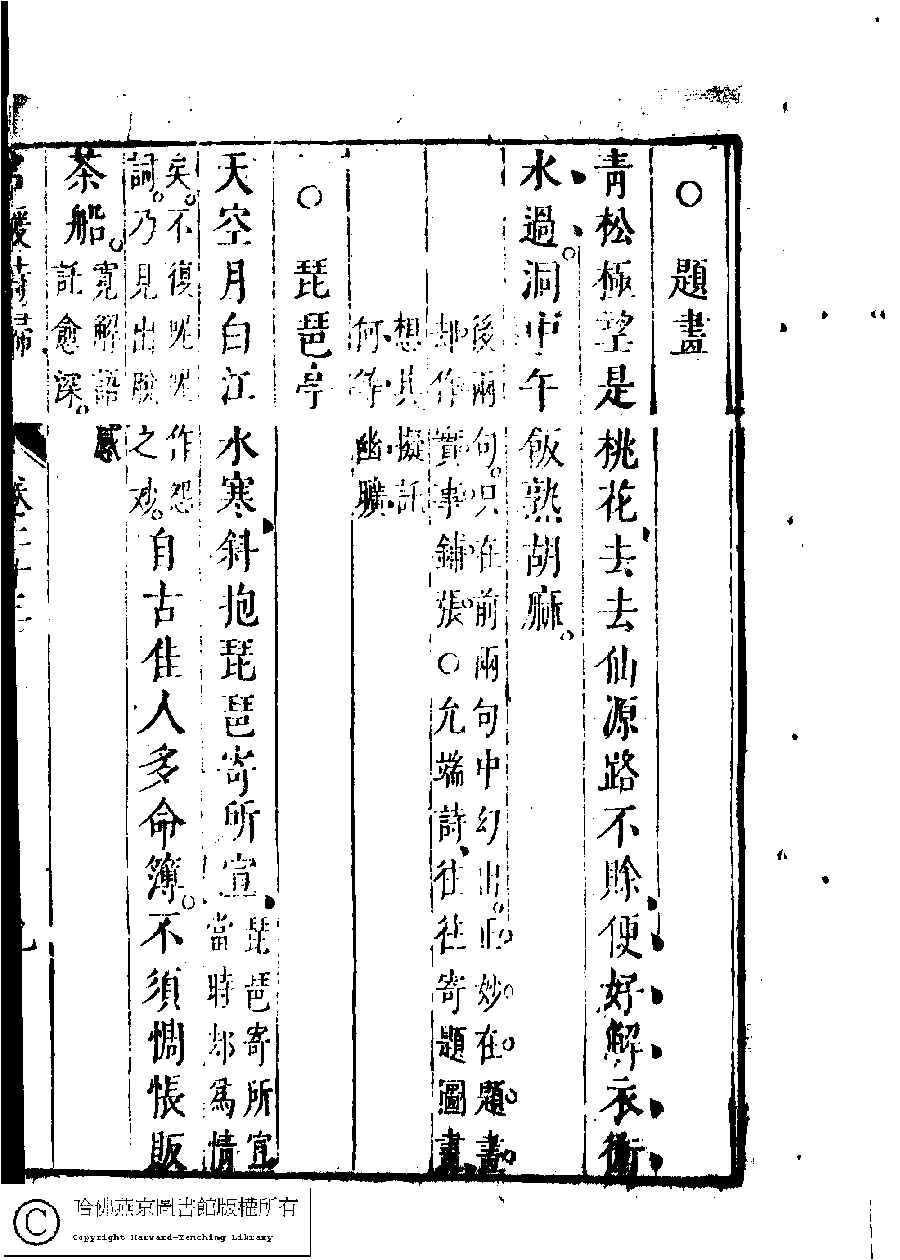 ○題畫
青松極望是桃花去去仙源路不賒便好解衣衝
水過洞中午飯熟胡麻。
後兩句。只在前兩句中幻出。正妙在題畫
却作實事鋪張。○允端詩往往寄題圖畫
想其擬託
何等幽曠
○琵琶亭
天空月白江水寒斜抱琵琶寄所宜
琵琶寄所宜
當時爲情
矣。不復作怨
詞。乃見出脫之妙。
自古佳人多命簿。不須惆悵販
茶船。
寬解語感
託愈深。
名媛詩歸
哈佛燕京圖書館版權所有
Copyright Harvard-Yenching Library